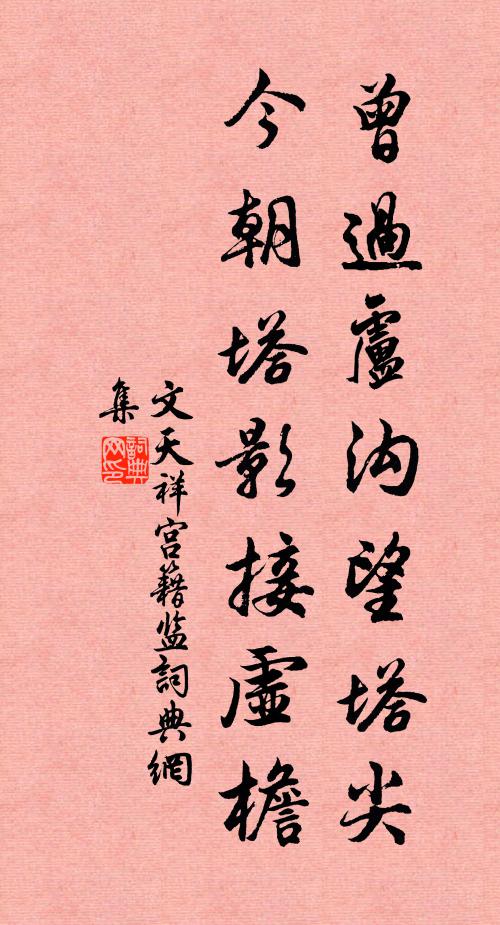 曾過盧沟望塔尖
今朝塔影接虛檐
文天祥宫籍监詞典網
集
詞典网印